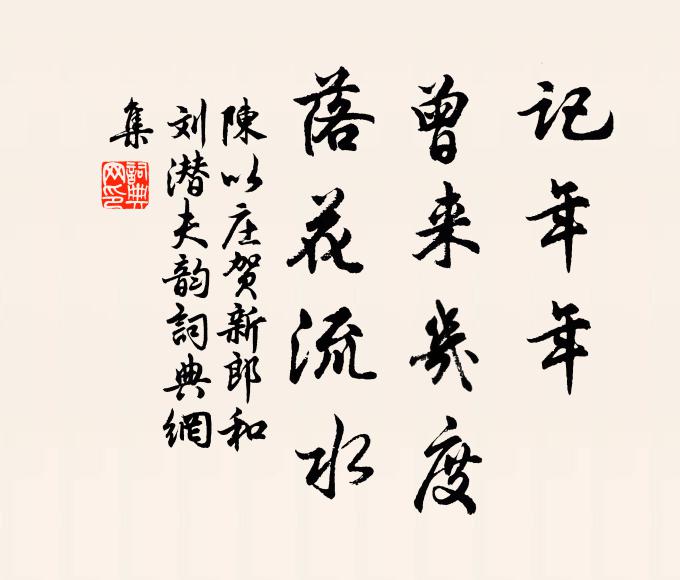 记年年
曾来幾度
落花流水
陳以庄贺新郎和
刘潜夫韵詞典網
集
詞典
网印